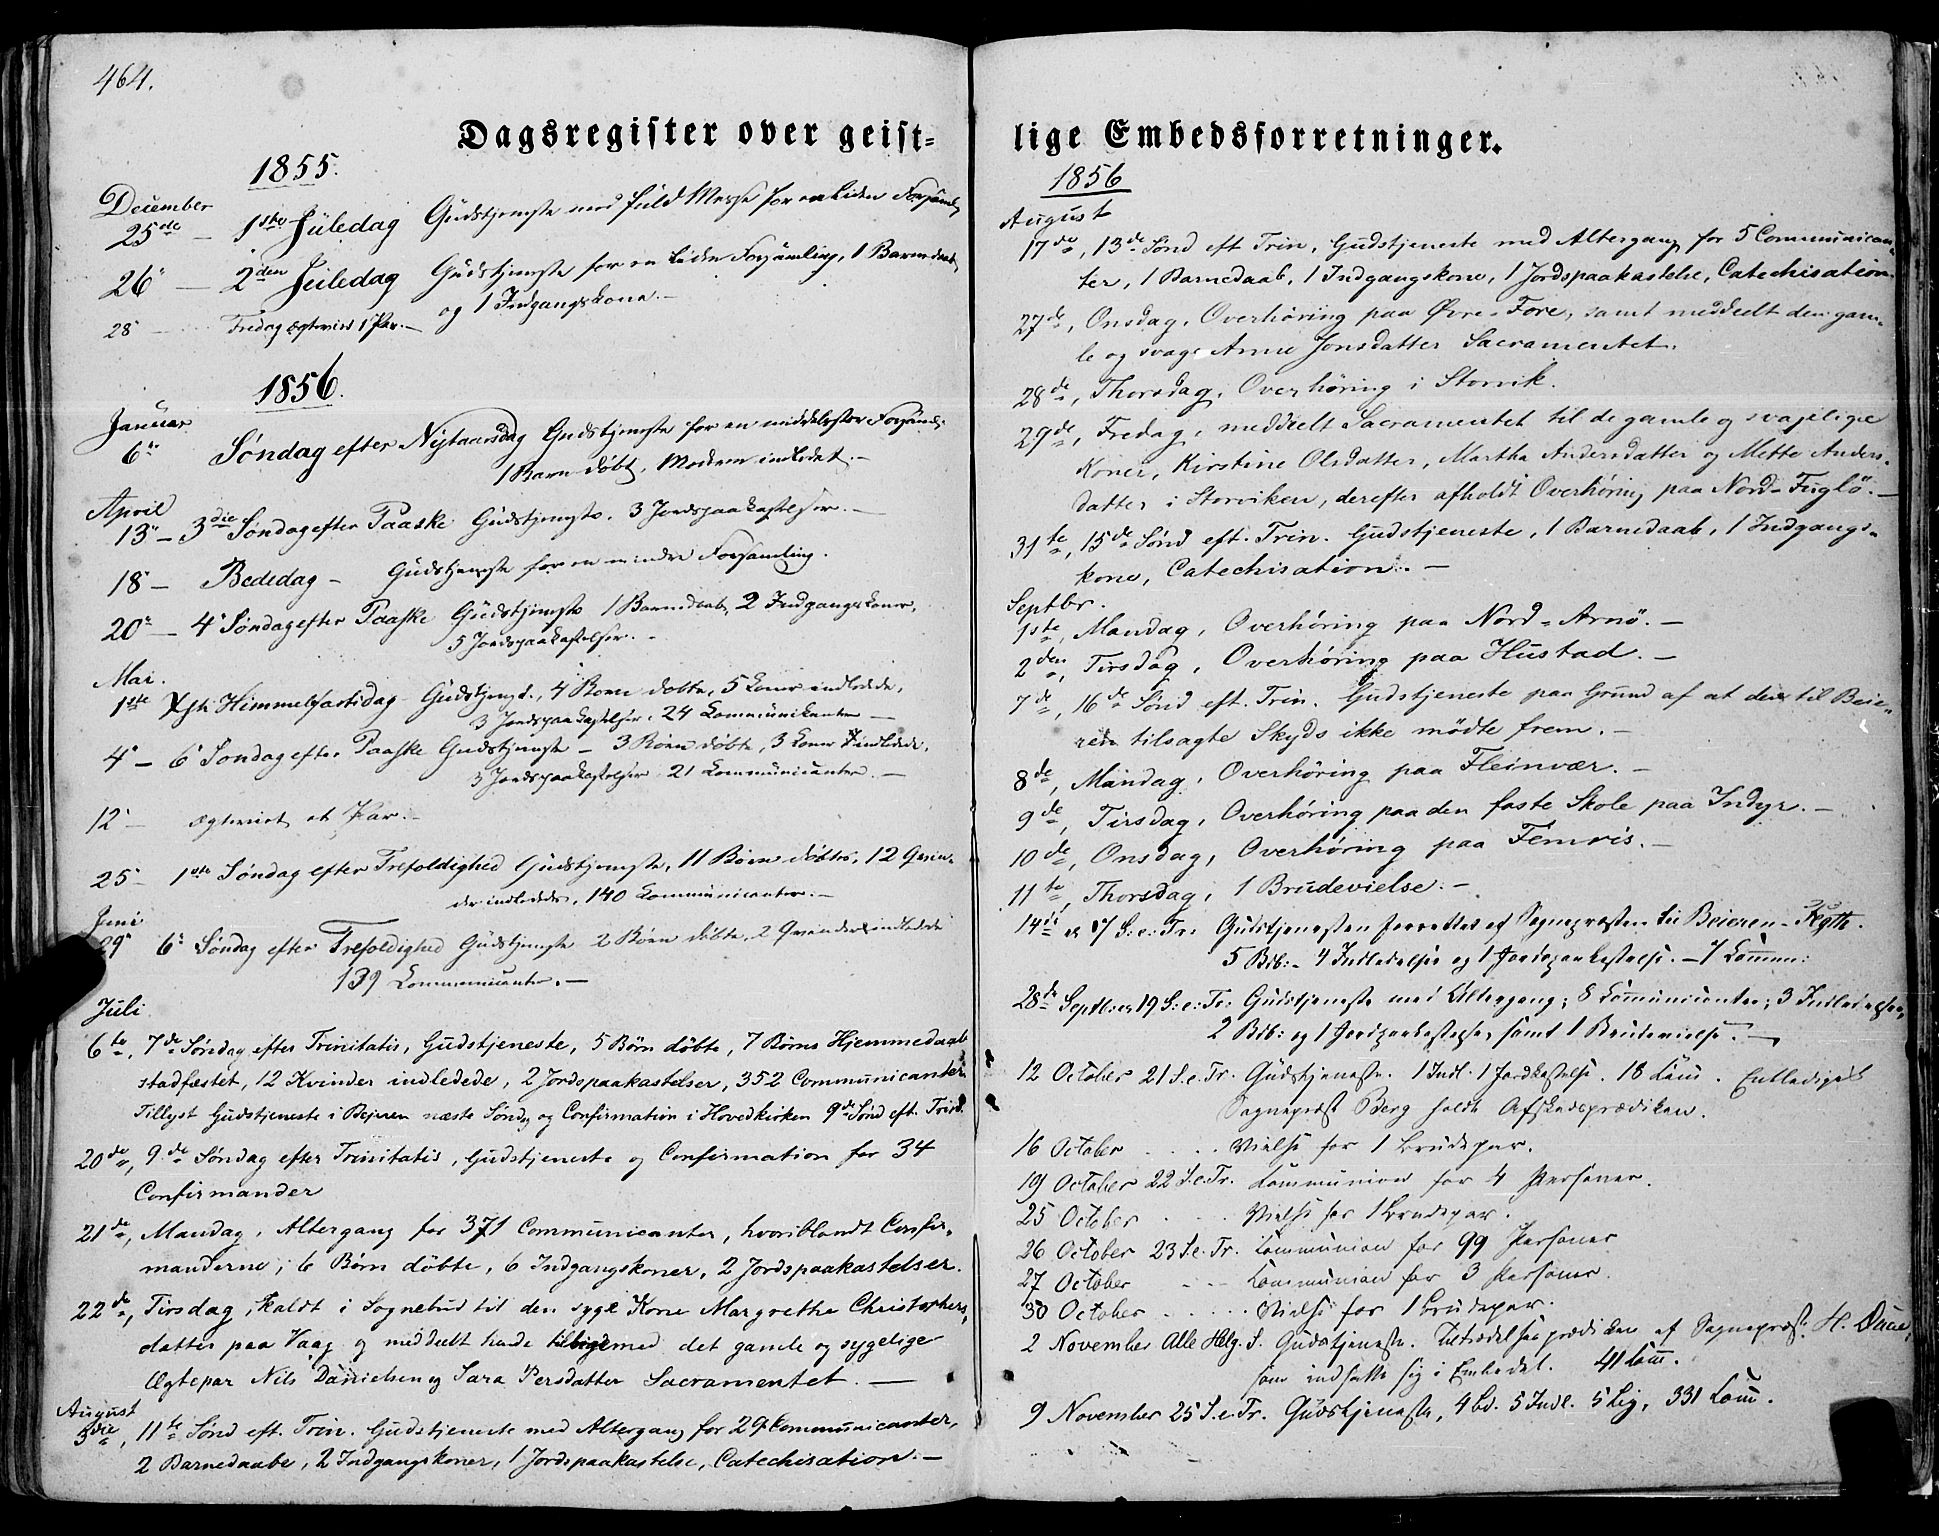 464.
Dagsregister over geist=
1855.
December
25de — 1ste Juledag Gudstjeneste med fuld Messe for en liden Forsaml.
26" — 2den Juledag Gudstjeneste for en liden Forsamling, 1 Barnedaab,
og 1 Indgangskone.—
28" — Fredag Ægteviet 1 Par.—
1856.
Januar
6" Søndag efter Nytaarsdag Gudstjeneste for en middelstor Forsaml.
1 Barn døbt, Moderen indledet.—
April
13" — 3die Søndag efter Paaske Gudstjeneste. 3 Jordspaakastelser.—
18" — Bededag — Gudstjeneste for en mindre Forsamling.
20" — 4" Søndag efter Paaske Gudstjeneste 1 Barnedaab, 2 Indgangskoner,
5 Jordspaakastelser.—
Mai.
1ste Chr. Himmelfartsdag Gudstjenst., 4 Børn døbte, 5 Koner indledede,
3 Jordspaakastelser. 24 Kommunikanter —
4" — 6" Søndag efter Paaske Gudstjeneste — 3 Børn døbte, 3 Koner indledede,
3 Jordspaakastelser. 21 Kommunicanter.—
12" — Ægteviet et Par.—
25 — 1ste Søndag efter Trefoldighed Gudstjeneste, 11 Børn døbte, 12 Qvin-
der indledede, 140 Kommunicanter.—
Juni
29" 6" Søndag efter Trefoldighed Gudstjeneste 2 Børn døbte, 2 Qvinder indledede
139 Kommunicanter.—
Juli
6te, 7de Søndag efter Trinitatis, Gudstjeneste, 5 Børn døbte, 7 Børns Hjemmedaab
stadfæstet, 12 Kvinder indledede, 2 Jordspaakastelser, 352 Communicanter.
Tillyst Gudstjeneste i Bejeren næste Søndag og Confirmation i Hovedkirken 9de Sønd eft. Trinit.
20de, 9de Søndag efter Trinitatis, Gudstjeneste og Confirmation for 34
Confirmander
21de, Mandag, Altergang for 371 Communicanter, hvoriblandt Confir-
manderne; 6 Børn døbte, 6 Indgangskoner, 2 Jordspaakastelser.
22de, Tirsdag, kaldt i Sognebud til den syge Kone Margrethe Christophers-
datter paa Vaag og meddeelt hende tilligemed det gamle og sygelige
Ægtepar Nils Danielsen og Sara Persdatter Sacramentet.—
August
3die, 11te Sønd eft. Trin. Gudstjeneste med Altergang for 29 Kommunicanter,
2 Barnedaabe, 2 Indgangskoner, 1 Jordspaakastelse, Catechisation.—
lige Embedsforretninger.
1856
August
17de, 13de Sønd eft Trin, Gudstjeneste med Altergang for 5 Communican-
ter, 1 Barnedaab, 1 Indgangskone, 1 Jordspaakastelse, Catechisation.
27de, Onsdag, Overhøring paa Øvre-Fore, samt meddeelt den gam-
le og svage Anne Jonsdatter Sacramentet.
28de, Thorsdag, Overhøring i Storvik.
29de, Fredag, meddeelt Sacramentet til de gamle og svagelige
Koner, Kirstine Olsdatter, Martha Andersdatter og Mette Anders-
datter i Storviken, derefter afholdt Overhøring paa Nord-Fuglö.—
31te, 15de Sønd eft. Trin. Gudstjeneste, 1 Barnedaab, 1 Indgangs-
kone, Catechisation.—
Septbr.
1ste, Mandag, Overhøring paa Nord-Arnö.—
2den, Tirsdag, Overhøring paa Hustad.—
7de, 16de Sønd eft. Trin. Gudstjeneste paa Grund af at den til Beie-
ren tilsagte Skyds ikke mödte frem.—
8de, Mandag, Overhøring paa Fleinvær.—
9de, Tirsdag, Overhøring paa den faste Skole paa Indyr.—
10de, Onsdag, Overhøring paa Femris.—
11te, Thorsdag, 1 Brudevielse.—
14de 17 S: e: Tr: Gudstjenesten forrettet af Sognepræsten til Beieren
5 Bdb:- 4 Indledelser og 1 Jordspaakastelse. — 7 Commu:
28de Septbr 19 S: e: Tr: Gudstjeneste med Altergang; 8 Communicanter; 3 Indledelser,
2 Bdb: og 1 Jordpaakastelse, samt 1 Brudevielse.—
12 October 21 S. e. Tr. Gudstjeneste. 1 Indl. 1 Jordkastelse. 18 Com. Entlediget
Sognepræst Berg holdt Afskedsprædiken.
16 October . . . . Vielse for 1 Brudepar.
19 October 22 S. e. Tr. Communion for 4 Personer.
25 October . . . Vielse for 1 Brudepar.
26 October 23 S. e. Tr. Communion for 99 Personer
27 October . . . Communion for 3 Personer.
30 October . . . . . Vielse for 1 Brudepar.
2 November Alle Helg. S. Gudstjeneste. Tiltrædelsesprædiken af Sognepræst H. Daae,
som indsatte sig i Embedet. 41 Com.
9 November 25 S. e. Tr. Gudstjeneste, 4 Bd. 5 Indl. 5 Lig, 331 Com.